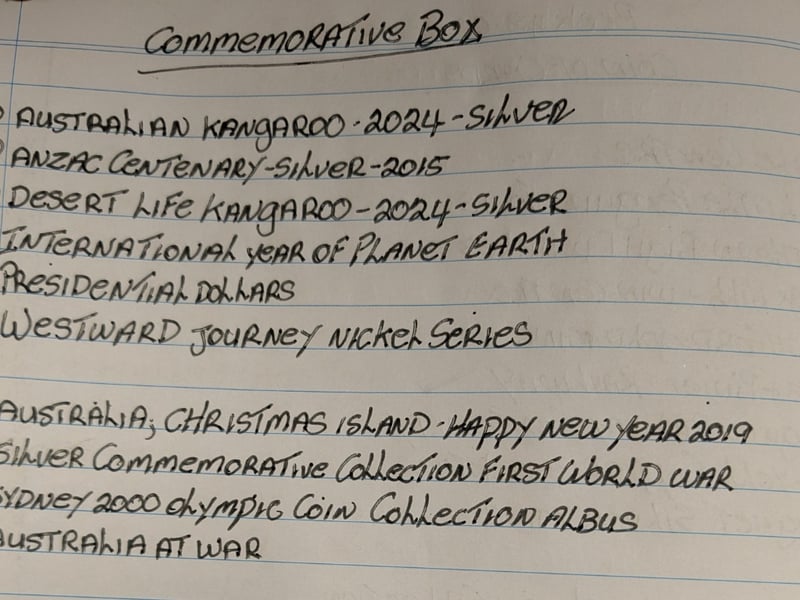 Commemorative Box
Australian Kangaroo - 2024 - Silver
ANZAC Centenary - Silver - 2015
Desert Life Kangaroo - 2024 - Silver
International Year of Planet Earth
Presidential Dollars
Westward Journey Nickel Series
Australia; Christmas Island - Happy New Year 2019
Silver Commemorative Collection First World War
Sydney 2000 Olympic Coin Collection Albus
Australia at War